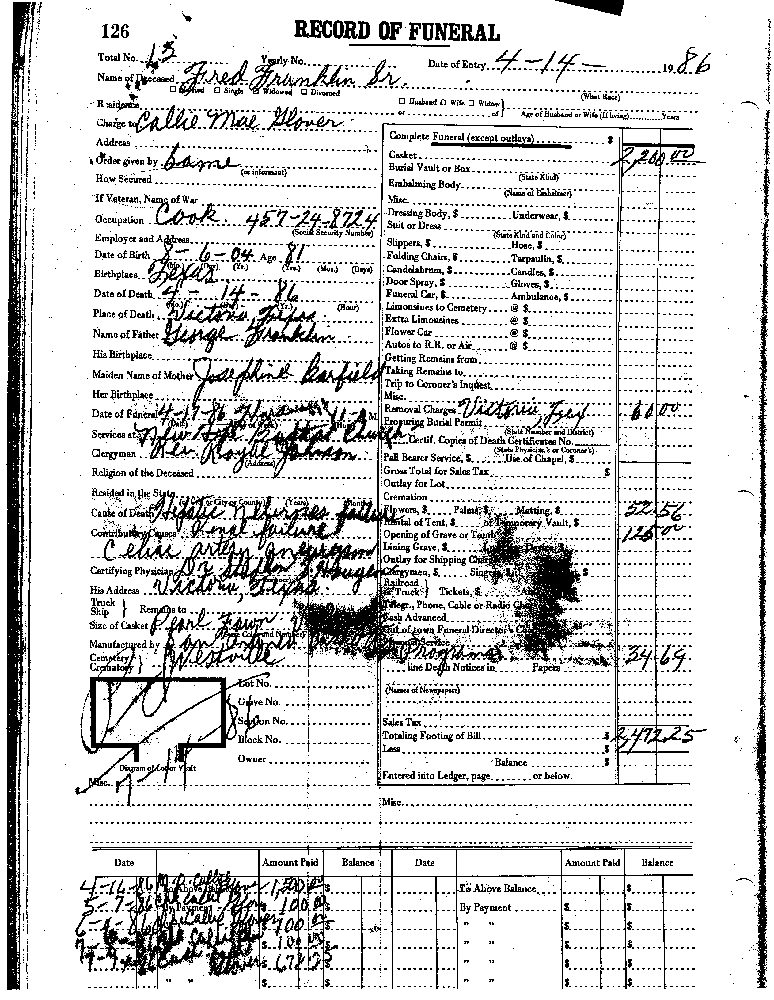 126
RECORD OF FUNERAL
Total No. 13 Yearly No. Date of Entry 4-14- 1986
Name of Deceased Fred Franklin Sr.
Married Single Widowed Divorced (What Race)
Residence Husband Wife Widow
or of Age of Husband or Wife (if living) Years
Charge to Callie Mae Glover
Address
Order given by Same
(or informant)
How Secured
If Veteran, Name of War
Occupation Cook 457-24-8724
(Social Security Number)
Employer and Address
Date of Birth 8-6-04 Age 81
(Mo.) (Day) (Yr.) (Yrs.) (Mos.) (Days)
Birthplace Texas
Date of Death 4-14-86
(Hour)
Place of Death Victoria Texas
Name of Father George Franklin
His Birthplace
Maiden Name of Mother Josephine Barfield
Her Birthplace
Date of Funeral 4-17-86
Services at New Hope Baptist Church
Clergyman Rev. Royal Johnson
(Address)
Religion of the Deceased
Resided in the State
Cause of Death failure
Contributory Causes Renal failure
artery aneurysm
Certifying Physician Dr
His Address Victoria Texas
Truck Ship Remains to
Size of Casket Pearl Fawn
Manufactured by San Antonio
Cemetery Crematory Westville
Lot No.
Grave No.
Section No.
Block No.
Owner
Diagram of Lot or Vault
Misc.
Complete Funeral (except outlays) $
Casket 2,200.00
Burial Vault or Box
(State Kind)
Embalming Body
(Name of Embalmer)
Misc.
Dressing Body, $ Underwear, $
Suit or Dress
(State Kind and Color)
Slippers, $ Hose, $
Folding Chairs, $ Tarpaulin, $
Candelabrum, $ Candles, $
Door Spray, $ Gloves, $
Funeral Car, $ Ambulance, $
Limousines to Cemetery @ $
Extra Limousines @ $
Flower Car @ $
Autos to R.R. or Air @ $
Getting Remains from
Taking Remains to
Trip to Coroner's Inquest
Misc.
Removal Charges Victoria, Tex 60.00
Procuring Burial Permit
(State Number and District)
Certif. Copies of Death Certificates No.
(State Physician's or Coroner's)
Pall Bearer Service, $ Use of Chapel, $
Gross Total for Sales Tax $
Outlay for Lot
Cremation
Flowers, $ Palms, $ Matting, $ 52.56
Rental of Tent, $ or Temporary Vault, $
Opening of Grave or Tomb 125.00
Lining Grave, $
Outlay for Shipping Charges
Clergymen, $ Singers, $ $
Railroad or Truck Tickets, $
Telegr., Phone, Cable or Radio Charges
Cash Advanced
Out of town Funeral Director's Charges
Programs 34.69
line Death Notices in Papers
(Names of Newspapers)
Sales Tax
Totaling Footing of Bill $ 2,472.25
Less $
Balance $
Entered into Ledger, page or below.
Misc.
Date Amount Paid Balance Date Amount Paid Balance
4-16-86 1,500.00 $ To Above Balance $
5-7-86 100.00 $ By Payment $ $
100.00 $ " " $ $
100.00 $ " " $ $
Glover $ $ " " $ $